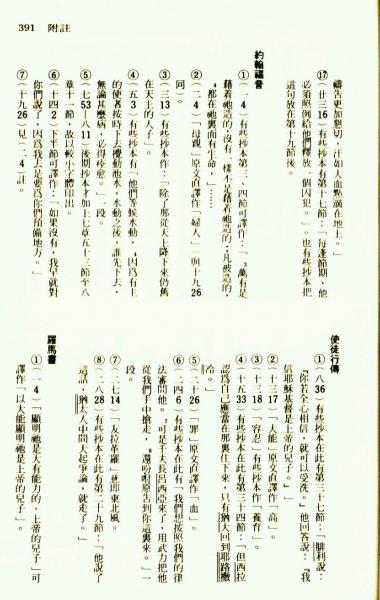 391 附註
禱告更加懇切,汗如大血點滴在地上。」
⑰(廿三16)有些抄本有第十七節:「每逢節期,他
必須照例給他們釋放一個囚犯。」。也有些抄本把
這句放在第十九節後。
約翰福音
①(一4)有些抄本第三、四節可譯作:「³萬有是
藉着祂造的;沒有一樣不是藉着祂造的;凡被造的,
⁴都在祂裏面有生命,……」
②(二4)「母親」原文直譯作「婦人」(與十九26
同)。
③(三13)有些抄本作:「除了那從天上降下來仍舊
在天上的人子」。
④(五3)有些抄本有「他們等候水動,⁴因爲有主
的使者按時下去攪動池水,水動之後,誰先下去,
無論甚麼病,必得痊愈。」一段。
⑤(七53—八11)後期抄本才加上七章五十三節至八
章十一節,故以較小字體印出。
⑥(十四2)下半節可譯作:「如果沒有,我早就對
你們說了,因爲我去是要爲你們預備地方。」
⑦(十九26)見(二4)註。
使徒行傳
①(八36)有些抄本在此有第三十七節:「腓利說:
『你若全心相信,就可以受洗。』他回答說:『我
信耶穌基督是上帝的兒子。』」
②(十三17)「大能」原文直譯作「高」。
③(十三18)「容忍」有些抄本作「養育」。
④(十五33)有些抄本在此有第三十四節:「但西拉
認爲自己應當在那裏住下來,只有猶大回到耶路撒
冷。」
⑤(二十26)「罪」原文直譯作「血」。
⑥(二四6)有些抄本在此有「我們想按照我們的律
法審問他。⁷可是千夫長呂西亞來了,用武力把他
從我們手中搶走,⁸還吩咐原告到你這裏來。」一
段。
⑦(二七14)「友拉革羅」意即東北風。
⑧(二八28)有些抄本在此有第二十九節:「他說了
這話,猶太人中間大起爭論,就走了。」
羅馬書
①(一4)「顯明祂是大有能力的,上帝的兒子」可
譯作「以大能顯明祂是上帝的兒子」。